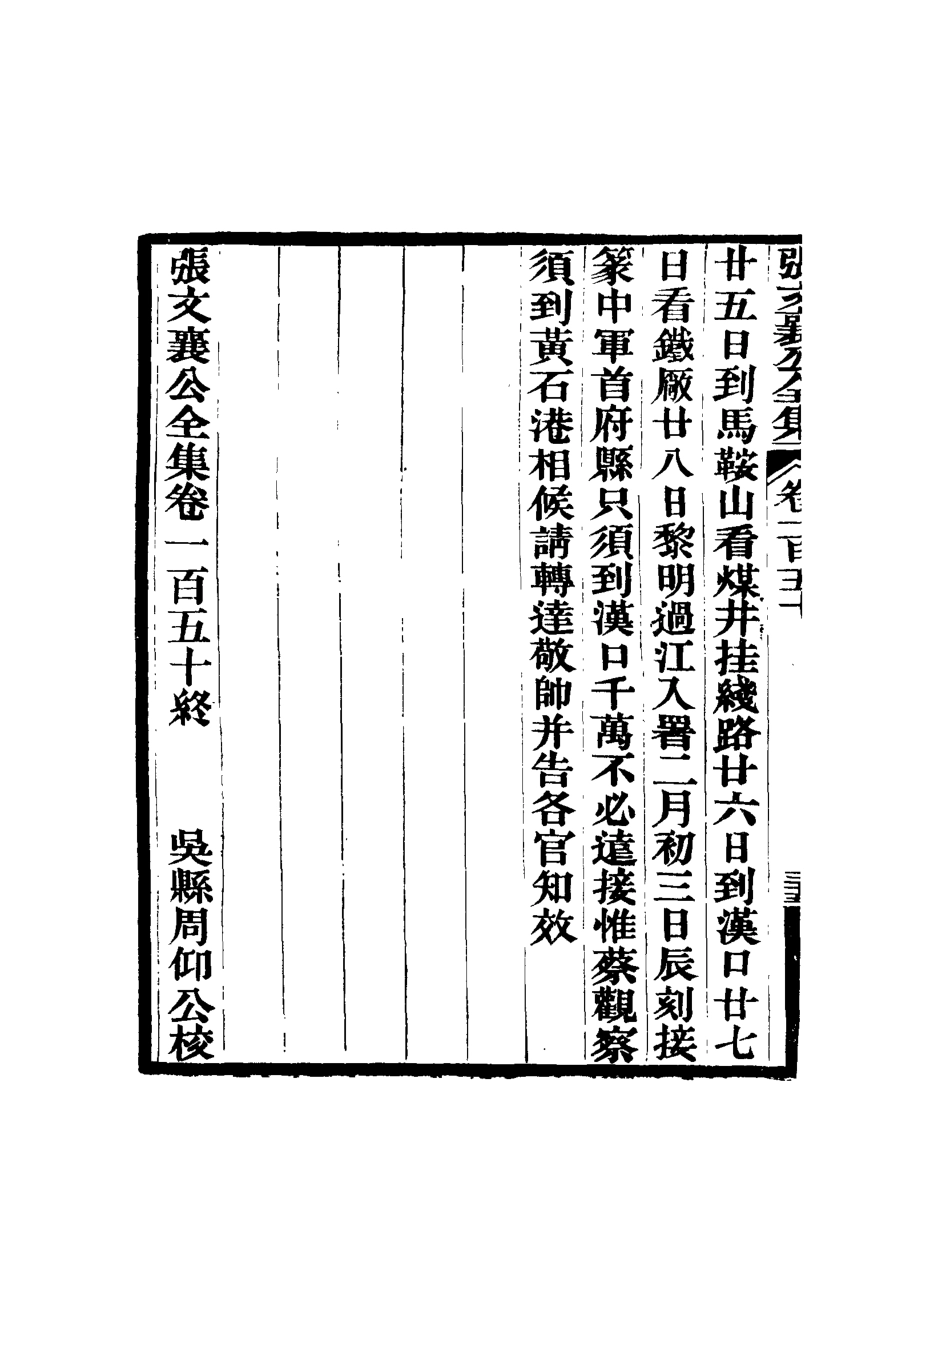 張文襄公全集 卷一百五十
廿五日到馬鞍山看煤井挂綫路廿六日到漢口廿七
日看鐵厰廿八日黎明過江入署二月初三日辰刻接
篆中軍首府縣只須到漢口千萬不必遠接惟蔡觀察
須到黃石港相候請轉達敬帥并告各官知效
張文襄公全集卷一百五十終 吳縣周仰公校